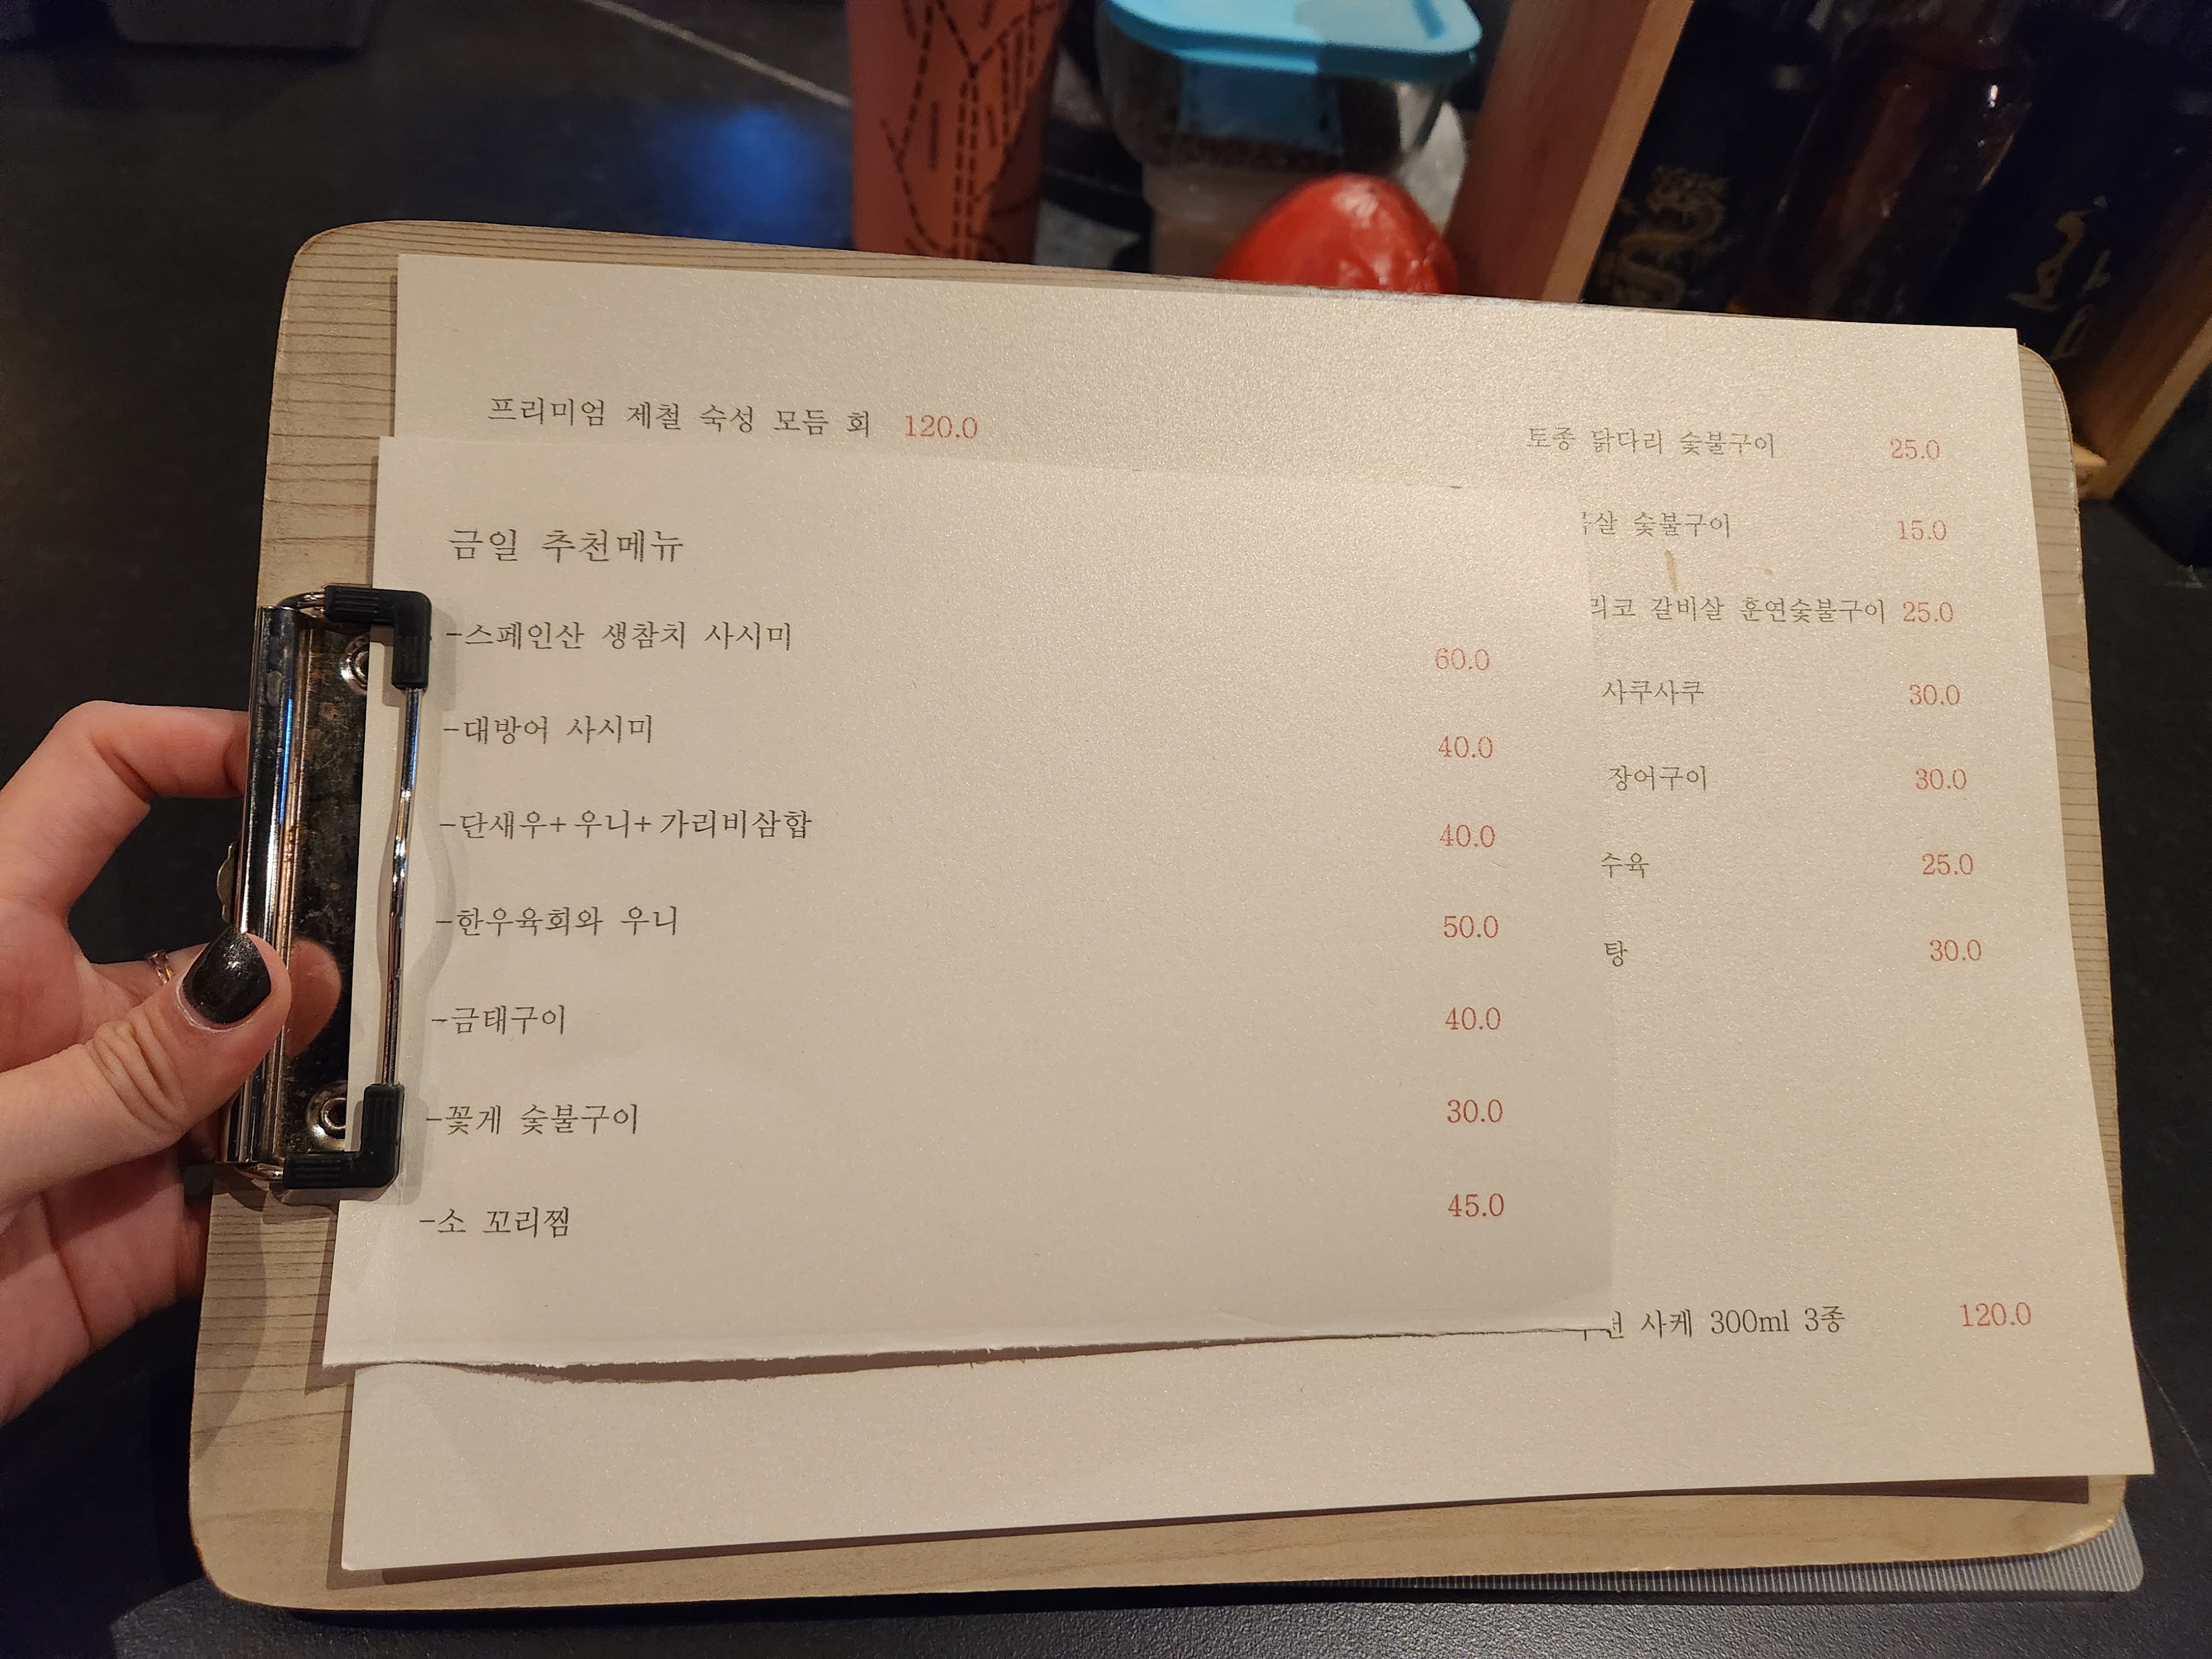 프리미엄 제철 숙성 모듬 회 120.0
금일 추천메뉴
-스페인산 생참치 사시미 60.0
-대방어 사시미 40.0
-단새우+우니+가리비삼합 40.0
-한우육회와 우니 50.0
-금태구이 40.0
-꽃게 숯불구이 30.0
-소 꼬리찜 45.0
토종 닭다리 숯불구이 25.0
숯불구이 15.0
갈비살 훈연숯불구이 25.0
사쿠사쿠 30.0
장어구이 30.0
수육 25.0
탕 30.0
사케 300ml 3종 120.0